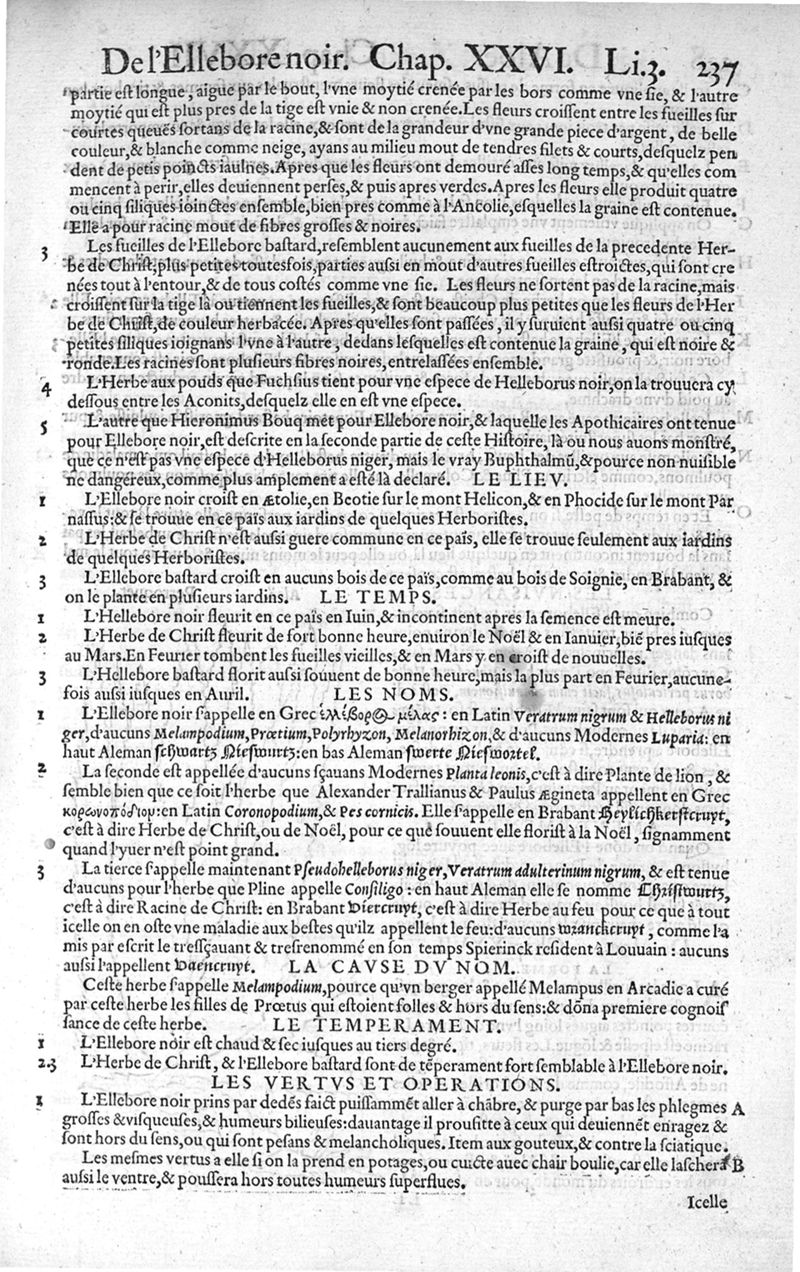 De l'Ellebore noir. Chap. XXVI. Li.3. 237
partie est longue, aigue par le bout, l'vne moytié crenée par les bors comme vne sie, & l'autre
moytié qui est plus pres de la tige est vnie & non crenée. Les fleurs croissent entre les fueilles sur
courtes queuës sortans de la racine, & sont de la grandeur d'vne grande piece d'argent, de belle
couleur, & blanche comme neige, ayans au milieu mout de tendres filets & courts, desquelz pen
dent de petis poincts iaulnes. Apres que les fleurs ont demouré asses long temps, & qu'elles com
mencent à perir, elles deuiennent perses, & puis apres verdes. Apres les fleurs elle produit quatre
ou cinq siliques ioinctes ensemble, bien pres comme à l'Ancolie, esquelles la graine est contenue.
Elle a pour racine mout de fibres grosses & noires.
3 Les fueilles de l'Ellebore bastard, resemblent aucunement aux fueilles de la precedente Her-
be de Christ, plus petites toutesfois, parties aussi en mout d'autres fueilles estroictes, qui sont cre
nées tout à l'entour, & de tous costés comme vne sie. Les fleurs ne sortent pas de la racine, mais
croissent sur la tige là ou tiennent les fueilles, & sont beaucoup plus petites que les fleurs de l'Her
be de Christ, de couleur herbacée. Apres qu'elles sont passées, il y suruient aussi quatre ou cinq
petites siliques ioignans l'vne à l'autre, dedans lesquelles est contenue la graine, qui est noire &
ronde. Les racines sont plusieurs fibres noires, entrelassées ensemble.
4 L'Herbe aux pouds que Fuchsius tient pour vne espece de Helleborus noir, on la trouuera cy
dessous entre les Aconits, desquelz elle en est vne espece.
5 L'autre que Hieronimus Bouq met pour Ellebore noir, & laquelle les Apothicaires ont tenue
pour Ellebore noir, est descrite en la seconde partie de ceste Histoire, là ou nous auons monstré,
que ce n'est pas vne espece d'Helleborus niger, mais le vray Buphthalmũ, & pource non nuisible
ne dangéreux, comme plus amplement a esté là declaré. LE LIEV.
1 L'Ellebore noir croist en Ætolie, en Beotie sur le mont Helicon, & en Phocide sur le mont Par
nassus: & se trouue en ce païs aux iardins de quelques Herboristes.
2 L'Herbe de Christ n'est aussi guere commune en ce païs, elle se trouue seulement aux iardins
de quelques Herboristes.
3 L'Ellebore bastard croist en aucuns bois de ce païs, comme au bois de Soignie, en Brabant, &
on le plante en plusieurs iardins. LE TEMPS.
1 L'Hellebore noir fleurit en ce païs en Iuin, & incontinent apres la semence est meure.
2 L'Herbe de Christ fleurit de fort bonne heure, enuiron le Noël & en Ianuier, biē pres iusques
au Mars. En Feurier tombent les fueilles vieilles, & en Mars y en croist de nouuelles.
3 L'Hellebore bastard florit aussi souuent de bonne heure, mais la plus part en Feurier, aucune-
fois aussi iusques en Auril. LES NOMS.
1 L'Ellebore noir s'appelle en Grec ἑλλέβορος μέλας: en Latin Veratrum nigrum & Helleborus ni
ger, d'aucuns Melampodium, Prœtium, Polyrhyzon, Melanorhizon, & d'aucuns Modernes Luparia: en
haut Aleman schwartz Nieswurtz: en bas Aleman swerte Nieswortel.
2 La seconde est appellée d'aucuns sçauans Modernes Planta leonis, c'est à dire Plante de lion, &
semble bien que ce soit l'herbe que Alexander Trallianus & Paulus Ægineta appellent en Grec
κορωνοπόδιομ: en Latin Coronopodium, & Pes cornicis. Elle s'appelle en Brabant Heylichkerstcruyt,
c'est à dire Herbe de Christ, ou de Noël, pour ce que souuent elle florist à la Noël, signamment
quand l'yuer n'est point grand.
3 La tierce s'appelle maintenant Pseudohelleborus niger, Veratrum adulterinum nigrum, & est tenue
d'aucuns pour l'herbe que Pline appelle Consiligo: en haut Aleman elle se nomme Christwurtz,
c'est à dire Racine de Christ: en Brabant Viercruyt, c'est à dire Herbe au feu pour ce que à tout
icelle on en oste vne maladie aux bestes qu'ilz appellent le feu: d'aucuns wrancheruyt, comme l'a
mis par escrit le tressçauant & tresrenommé en son temps Spierinck resident à Louuain: aucuns
aussi l'appellent Vaencruyt. LA CAVSE DV NOM.
Ceste herbe s'appelle Melampodium, pource qu'vn berger appellé Melampus en Arcadie a curé
par ceste herbe les filles de Prœtus qui estoient folles & hors du sens: & dõna premiere cognois
sance de ceste herbe. LE TEMPERAMENT.
1 L'Ellebore noir est chaud & sec iusques au tiers degré.
2.3 L'Herbe de Christ, & l'Ellebore bastard sont de tēperament fort semblable à l'Ellebore noir.
LES VERTVS ET OPERATIONS.
1 L'Ellebore noir prins par dedēs faict puissammēt aller à chãbre, & purge par bas les phlegmes A
grosses & visqueuses, & humeurs bilieuses: dauantage il prousitte à ceux qui deuiennēt enragez &
sont hors du sens, ou qui sont pesans & melancholiques. Item aux gouteux, & contre la sciatique.
Les mesmes vertus a elle si on la prend en potages, ou cuicte auec chair boulie, car elle laschera B
aussi le ventre, & poussera hors toutes humeurs superflues.
Icelle